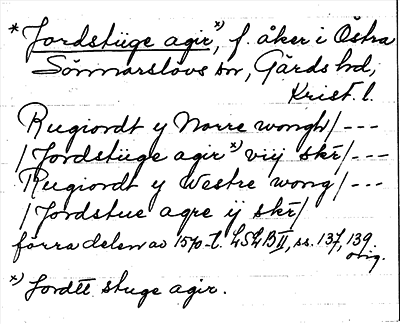 * Jordstüge agir x), f. åker i Östra
Sönnarslövs sn, Gärds hd,
Krist. l.
Rugiordt y Norre wongh/ ---
/ Jordstüge agir x) viij skr/ ---
Rugiordt y Westre wong/ ---
/ Jordstue agre ij skr/
förra delen av 1570-t. LSLB II, ss. 137, 139.
orig.
x) Jordtt stuge agir.